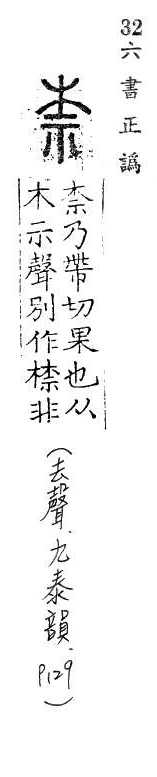 32六書正譌
柰
柰乃帶切果也从
木示聲別作㮈非
(去聲.九泰韻.P.129)